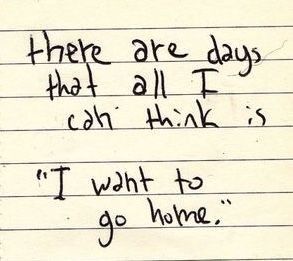 there are days
that all I
can think is
"I want to
go home."